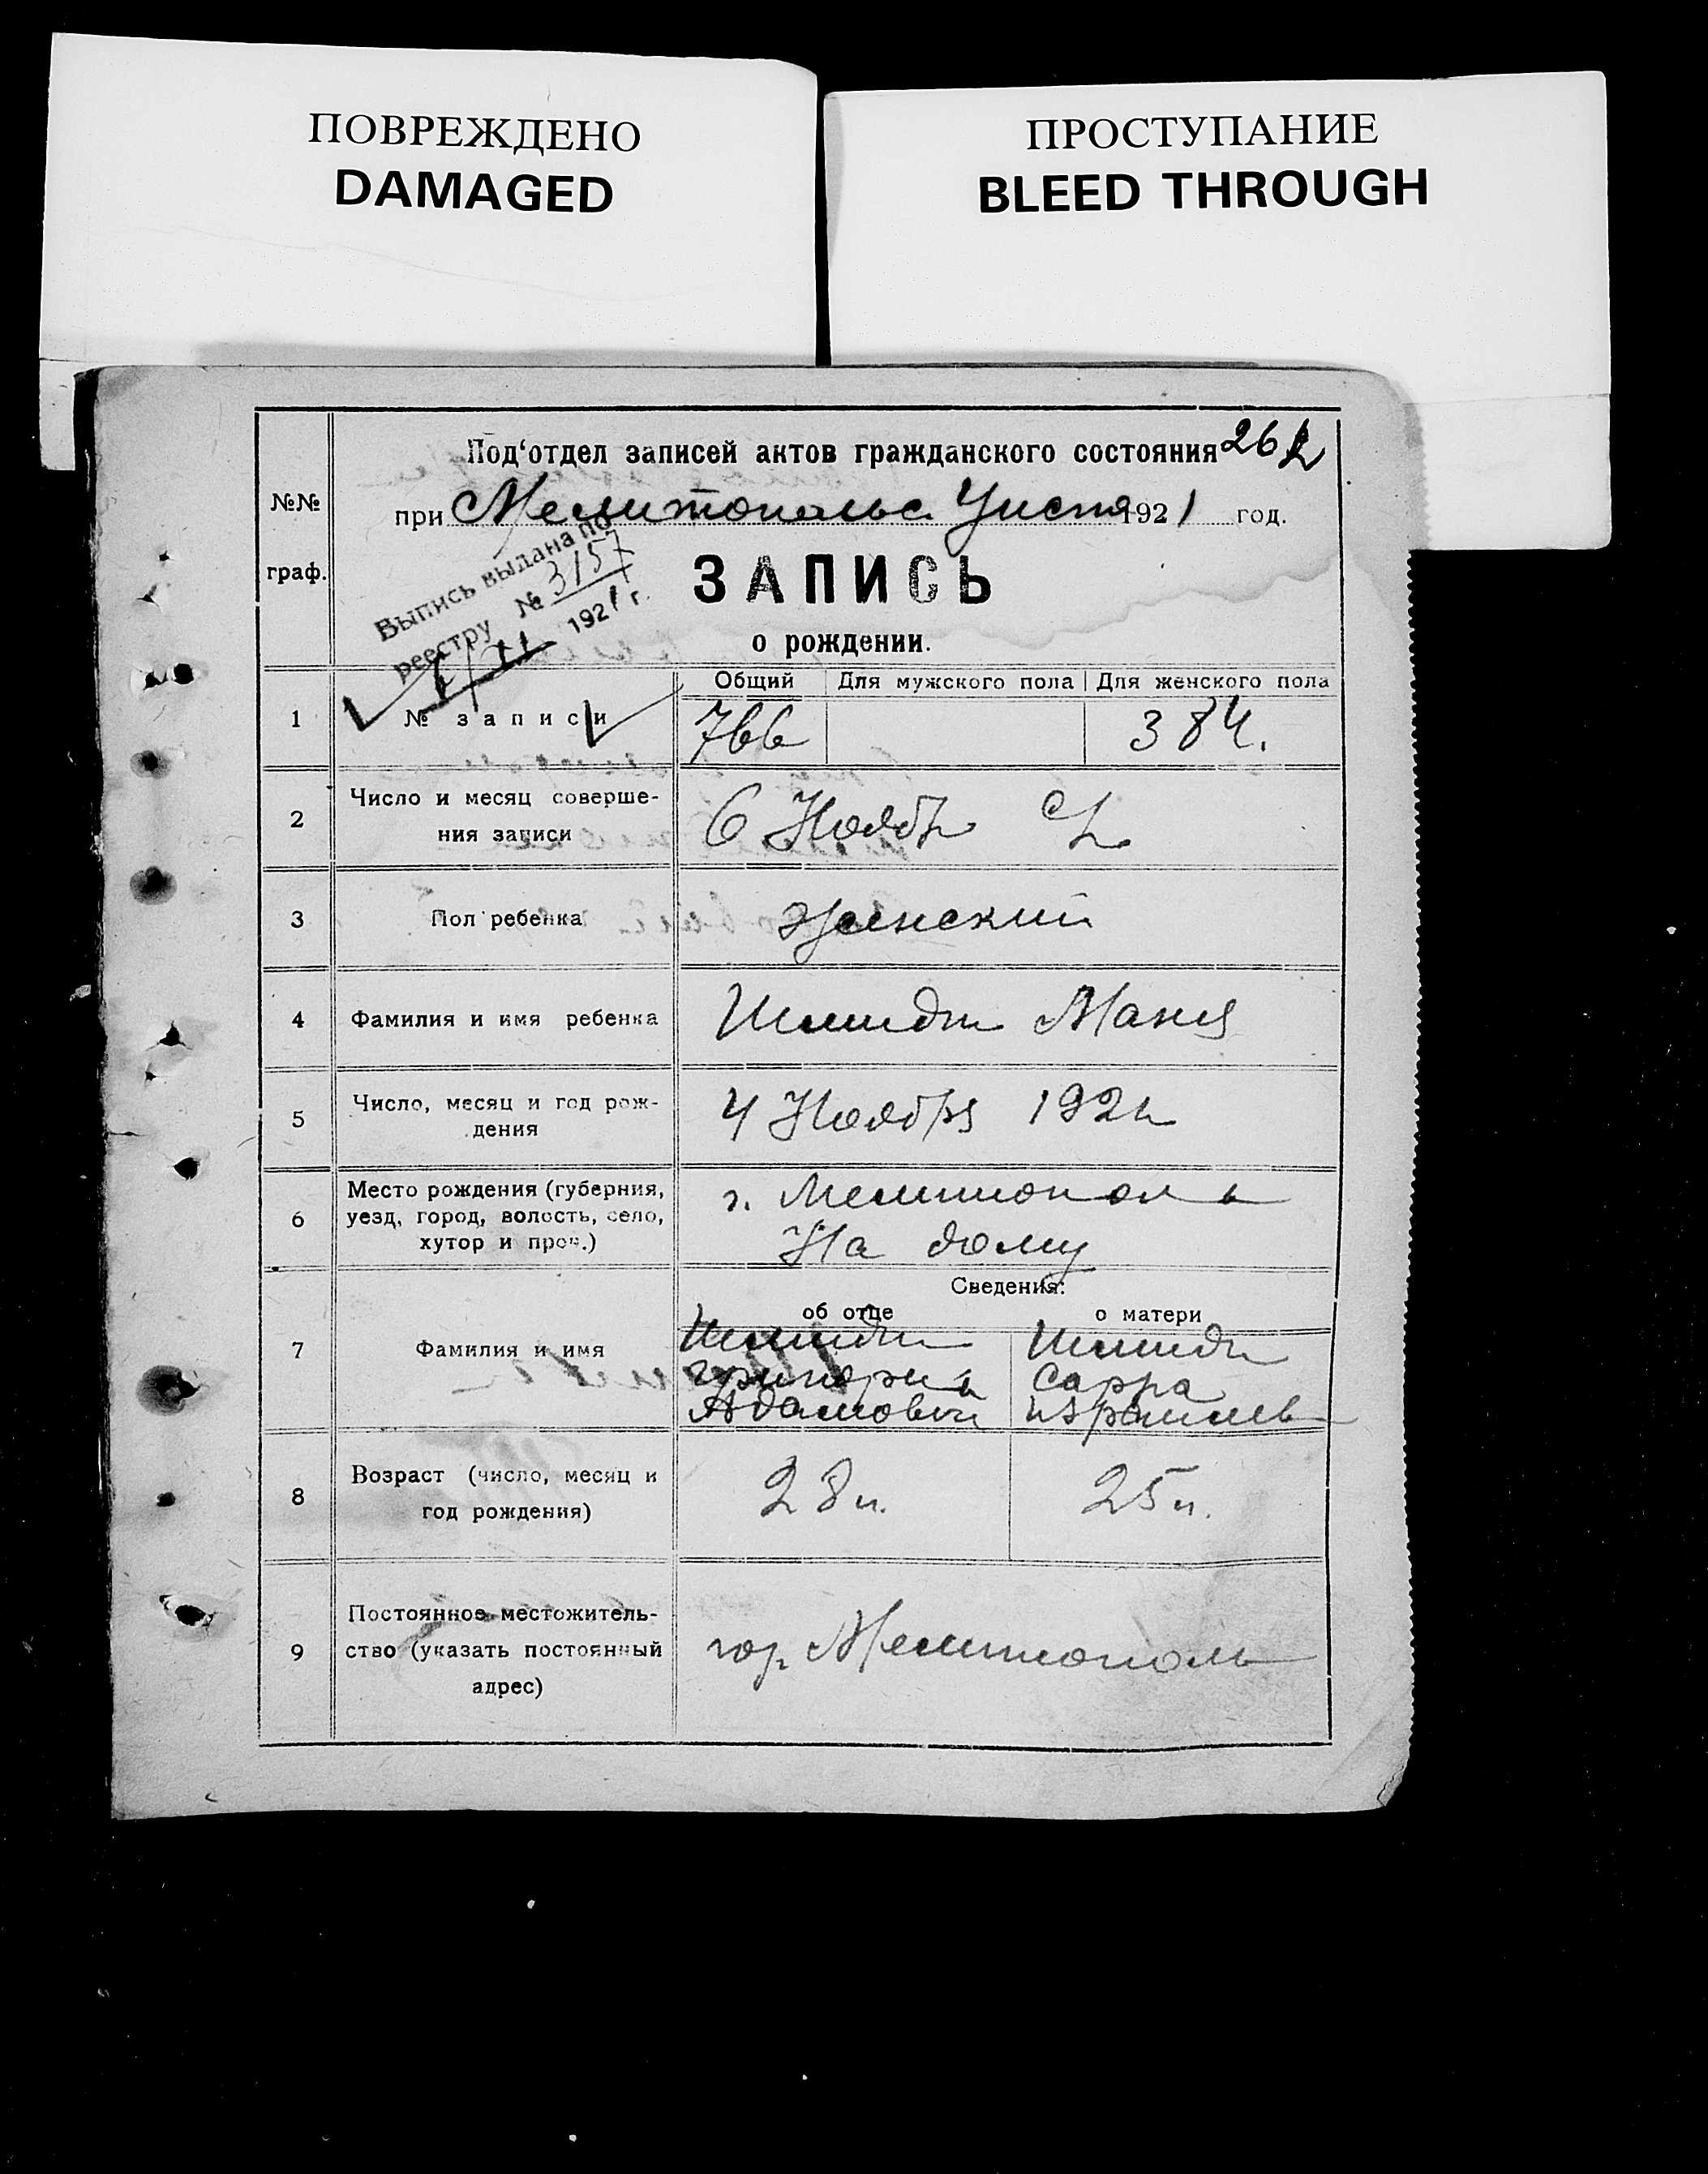 ПОВРЕЖДЕНО
DAMAGED
ПРОСТУПАНИЕ
BLEED THROUGH
№№
граф.
Под‘отдел записей актов гражданского состояния 262
при Мелитопольс. 1921 год.
Выпись выдана по
реестру № 3157
1921 г.
ЗАПИСЬ
о рождении.
Общий Для мужского пола Для женского пола
1 № записи 766 384.
2 Число и месяц соверше-
ния записи
6 Ноябр
3 Пол ребенка женский
4 Фамилия и имя ребенка Шмидт Маня
5 Число, месяц и год рож-
дения
4 Ноября 192
6 Место рождения (губерния,
уезд, город, волость, село,
хутор и проч.)
г. Мелитополь
На дому
Сведения:
об отце о матери
7 Фамилия и имя
Шмидт
Григорий
Адамович
Шмидт
Сарра
Израилев
8 Возраст (число, месяц и
год рождения)
28 л. 25 л.
9 Постоянное местожитель-
ство (указать постоянный
адрес)
гор. Мелитополь